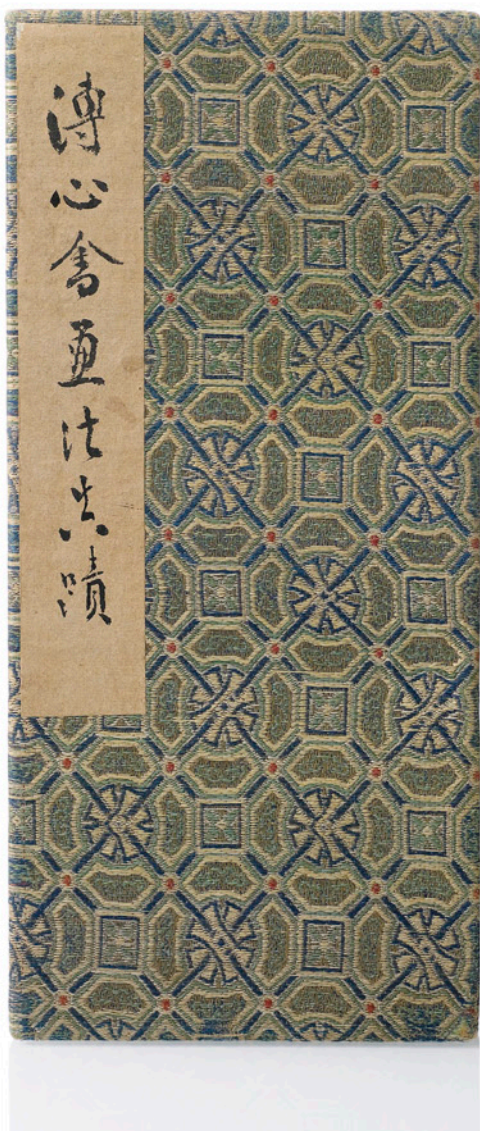 溥心畬画法真蹟